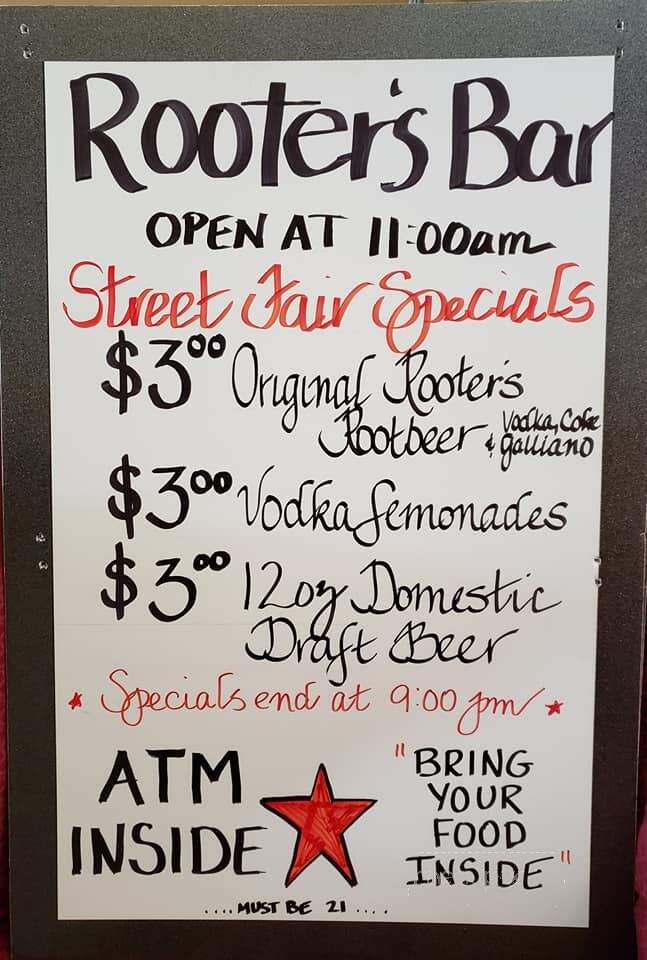 Rooter's Bar
OPEN AT 11:00am
Street Fair Specials
$3⁰⁰ Original Rooter's
Rootbeer & Vodka, Coke
galliano
$3⁰⁰ Vodka Lemonades
$3⁰⁰ 12oz Domestic
Draft Beer
★ Specials end at 9:00 pm ★
ATM
INSIDE
"BRING
YOUR
FOOD
INSIDE"
....MUST BE 21....